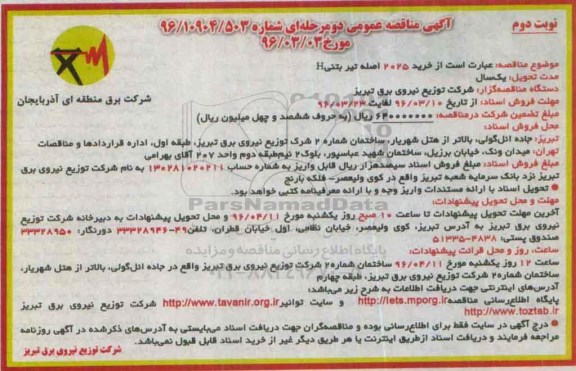 نوبت دوم
آگهی مناقصه عمومی دومرحله‌ای شماره ۹۶/۱۰۹۰۴/۵۰۳
مورخ ۹۶/۰۳/۰۳
شرکت برق منطقه ای آذربایجان
موضوع مناقصه: عبارت است از خرید ۲۰۲۵ اصله تیر بتنی H
مدت تحویل: یکسال
دستگاه مناقصه‌گزار: شرکت توزیع نیروی برق تبریز
مهلت فروش اسناد: از تاریخ ۹۶/۰۳/۱۰ لغایت ۹۶/۰۳/۲۳
مبلغ تضمین شرکت درمناقصه: ۶۴۰۰۰۰۰۰۰ ریال (به حروف ششصد و چهل میلیون ریال)
محل فروش اسناد:
تبریز: جاده ائل‌گولی، بالاتر از هتل شهریار، ساختمان شماره ۲ شرک توزیع نیروی برق تبریز، طبقه اول، اداره قراردادها و مناقصات
تهران: میدان ونک، خیابان برزیل، ساختمان شهید عباسپور، بلوک۲ نیم‌طبقه دوم واحد ۲۰۷ آقای بهرامی
مبلغ فروش اسناد: مبلغ فروش اسناد سیصدهزار ریال قابل واریز به شماره حساب ۱۳۰۲۸۱۰۲۰۲۱۱ به نام شرکت توزیع نیروی برق
تبریز نزد بانک سرمایه شعبه تبریز واقع در کوی ولیعصر- فلکه بارنج
● تحویل اسناد با ارائه مستندات واریز وجه و با ارائه معرفینامه کتبی خواهد بود.
مهلت و محل تحویل پیشنهادات:
آخرین مهلت تحویل پیشنهادات تا ساعت ۱۰ صبح روز یکشنبه مورخ ۹۶/۰۴/۱۱ و محل تحویل پیشنهادات به دبیرخانه شرکت توزیع
نیروی برق تبریز به آدرس تبریز، کوی ولیعصر، خیابان نظامی، اول خیابان قطران، تلفن۴۹-۳۳۳۲۸۹۴۶ دورنگار: ۳۳۳۲۸۹۵۰
صندوق پستی: ۴۸۳۸-۵۱۳۳۵
ساعت، روز و محل قرائت پیشنهادات:
ساعت ۱۲ روز یکشنبه مورخ ۹۶/۰۴/۱۱ ساختمان شماره۲ شرکت توزیع نیروی برق تبریز واقع در جاده ائل‌گولی، بالاتر از هتل شهریار،
ساختمان شماره۲ شرکت توزیع نیروی برق تبریز، طبقه چهارم
آدرس‌های اینترنتی جهت دریافت اطلاعات به شرح زیر می‌باشد:
پایگاه اطلاع رسانی مناقصه http://iets.mporg.ir و سایت توانیر http://www.tavanir.org.ir شرکت توزیع نیروی برق تبریز
http://www.toztab.ir
● درج آگهی در سایت فقط برای اطلاع‌رسانی بوده و مناقصه‌گران جهت دریافت اسناد می‌بایستی به آدرس‌های ذکرشده در آگهی روزنامه
مراجعه فرمایند و دریافت اسناد ازطریق اینترنت یا هر طریق دیگر غیر از خرید اسناد قابل قبول نمی‌باشد.
شرکت توزیع نیروی برق تبریز
ParsNamadData
پایگاه اطلاع رسانی مناقصه و مزایده